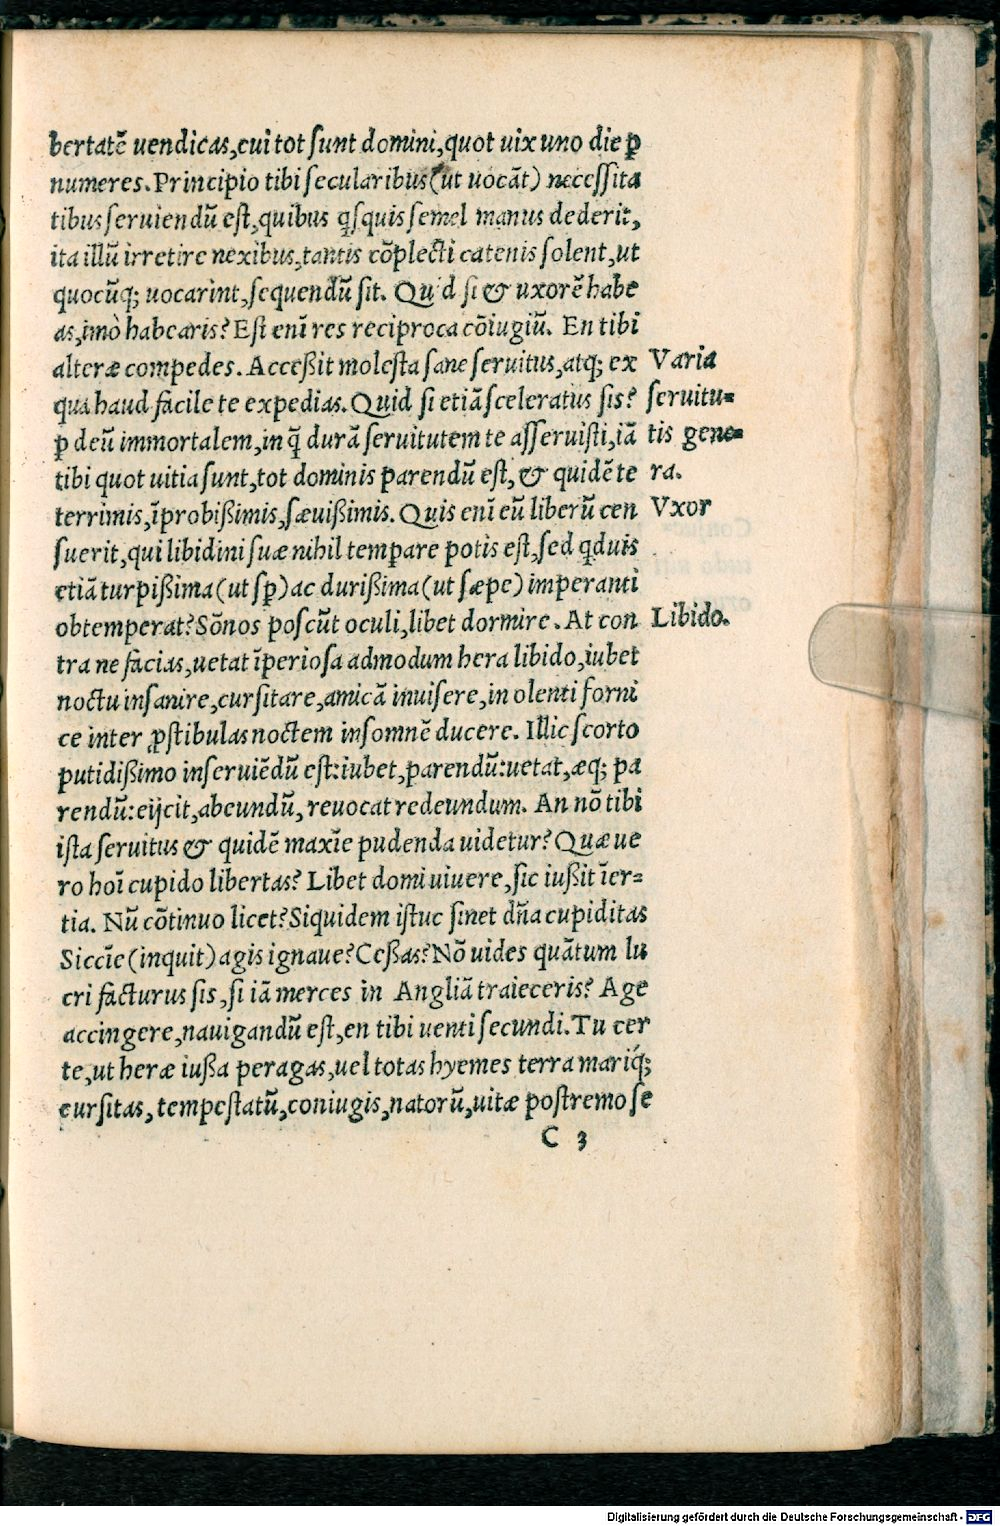 bertatē uendicas, cui tot ſunt domini, quot uix uno die ꝑ
numeres. Principio tibi ſecularibus (ut uocāt) neceſſita
tibus ſeruiendū eſt, quibus qſquis ſemel manus dederit,
ita illū irretire nexibus, tantis cōplecti catenis ſolent, ut
quocūq; uocarint, ſequendū ſit. Quid ſi & uxorē habe
as, imò habearis? Eſt enī res reciproca cōiugiū. En tibi
alteræ compedes. Acceßit moleſta ſane ſeruitus, atq; ex
qua haud facile te expedias. Quid ſi etiā ſceleratus ſis?
ꝑ deū immortalem, in q̄ durā ſeruitutem te aſſeruiſti, iā
tibi quot uitia ſunt, tot dominis parendū eſt, & quidē te
terrimis, īprobißimis, ſæuißimis. Quis enī eū liberū cen
ſuerit, qui libidini ſuæ nihil temꝑare potis eſt, ſed qduis
etiā turpißima (ut ſꝑ) ac durißima (ut ſæpe) imperanti
obtemperat? Sōnos poſcūt oculi, libet dormire. At con
tra ne facias, uetat īperioſa admodum hera libido, iubet
noctu inſanire, curſitare, amicā inuiſere, in olenti forni
ce inter ꝓſtibulas noctem inſomnē ducere. Illic ſcorto
putidißimo inſeruiēdū eſt: iubet, parendū: uetat, æq; pa
rendū: eijcit, abeundū, reuocat redeundum. An nō tibi
iſta ſeruitus & quidē maxīe pudenda uidetur? Quæ ue
ro hoī cupido libertas? Libet domi uiuere, ſic iußit īer=
tia. Nū cōtinuo licet? Siquidem iſtuc ſinet dn̄a cupiditas
Siccīe (inquit) agis ignaue? Ceßas? Nō uides quātum lu
cri facturus ſis, ſi iā merces in Angliā traieceris? Age
accingere, nauigandū eſt, en tibi uenti ſecundi. Tu cer
te, ut heræ iußa peragas, uel totas hyemes terra mariq́;
curſitas, tempeſtatū, coniugis, natorū, uitæ poſtremo ſe
C 3
Varia
ſeruitu=
tis gene=
ra.
Vxor
Libido.
Digitalisierung gefördert durch die Deutsche Forschungsgemeinschaft - DFG